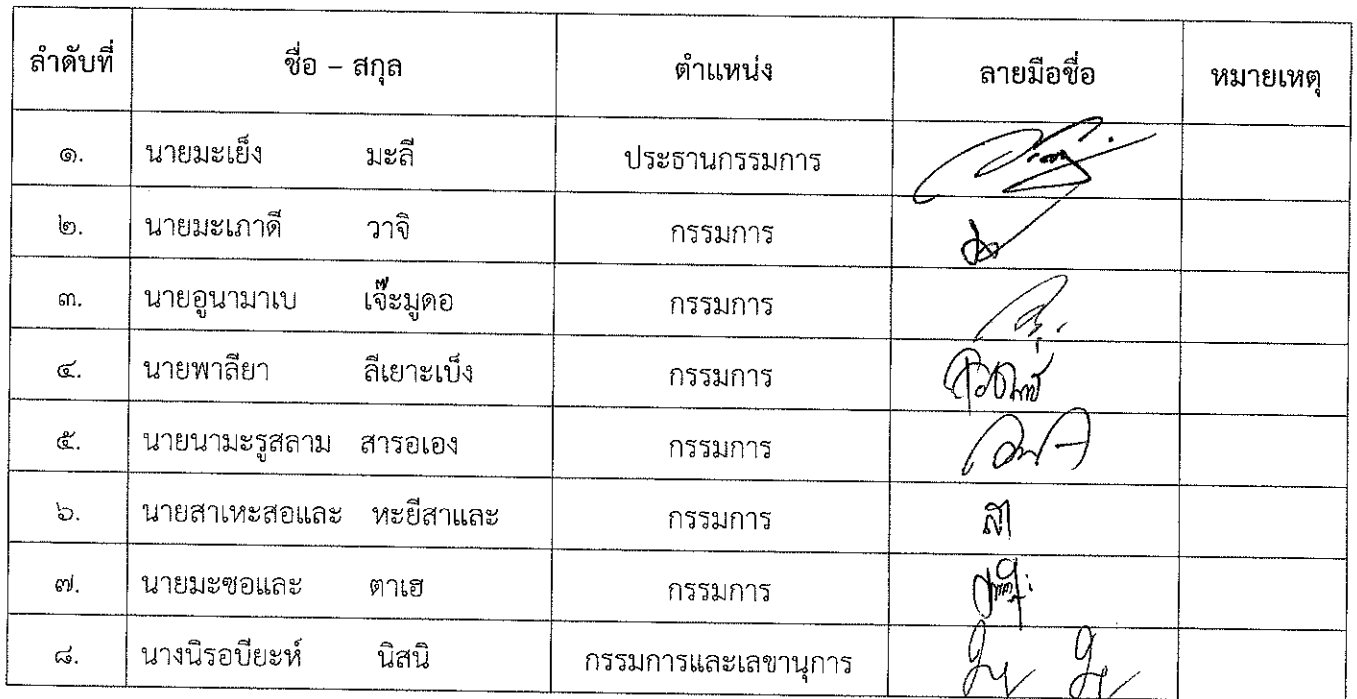 ลำดับที่ ชื่อ – สกุล ตำแหน่ง ลายมือชื่อ หมายเหตุ
๑. นายมะเย็ง มะลี ประธานกรรมการ
๒. นายมะเภาดี วาจิ กรรมการ
๓. นายอูนามาเบ เจ๊ะมูดอ กรรมการ
๔. นายพาลียา ลีเยาะเบ็ง กรรมการ
๕. นายนามะรูสลาม สารอเอง กรรมการ
๖. นายสาเหะสอและ หะยีสาและ กรรมการ สา
๗. นายมะซอและ ตาเฮ กรรมการ
๘. นางนิรอบียะห์ นิสนิ กรรมการและเลขานุการ